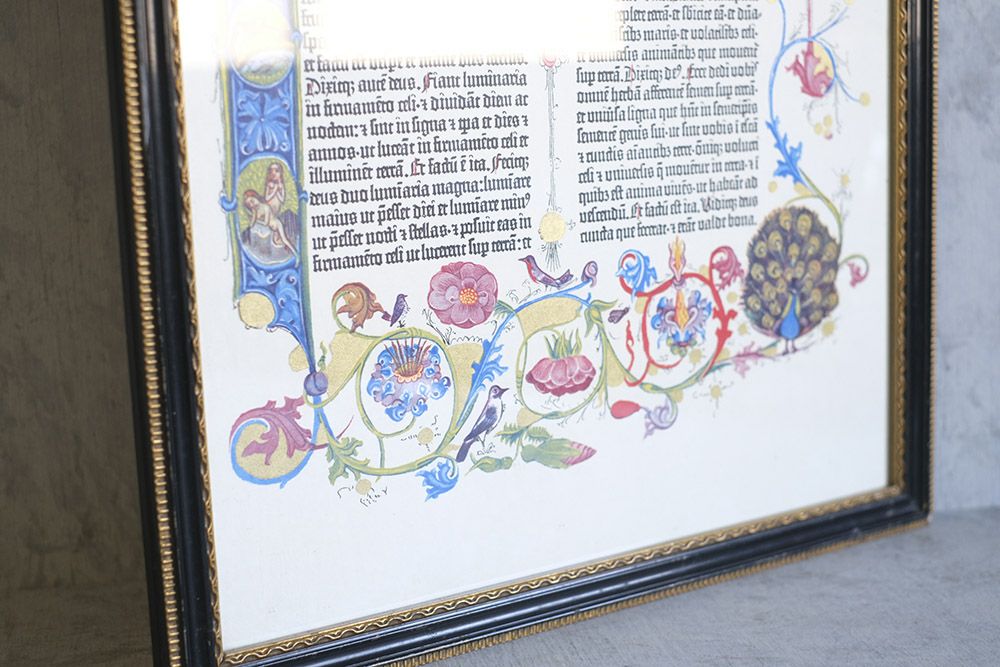 Dixitq; autē deus. Fiant luminaria
in firmamēto celi· ⁊ dividāt diem ac
noctem: ⁊ sint in signa ⁊ tp̄a et dies ⁊
annos· ut luceāt in firmamēto celi et
illuminēt terrā. Et factū ē ita. Fecitq;
deus duo luminaria magna: luminare
maius ut p̄esset diei et luminare minꝰ
ut p̄esset nocti ⁊ stellas· ⁊ posuit eas in
firmamēto celi ut lucerent sup terrā: et
replete terrā· et sbicite eā· et dñā-
piscibꝫ maris· et volatilibꝫ celi·
et universis animātibꝫ que moventˀ
sup terrā. Dixitq; deꝰ. Ecce dedi vobis
omnē herbā afferentē semen sup terrā·
et univsa ligna que hñt in semetipis
semente genis sui· ut sint vobis ī escā
⁊ cunctis aīantibꝫ terre· oīniq; volucri
celi ⁊ universis q̄ moventˀ in terra· ⁊ ī
quibꝫ est anima vivēs· ut habeāt ad
vescendū. Et factū est ita. Viditq; deus
cuncta que fecerat· ⁊ erāt valde bona.